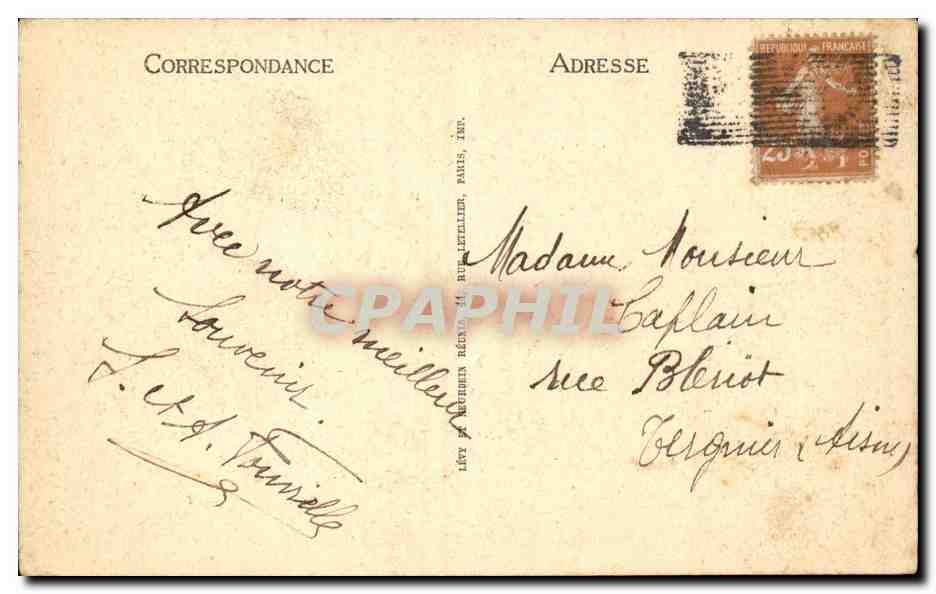 CORRESPONDANCE
ADRESSE
REPUBLIQUE FRANÇAISE
25
PO
Avec notre meilleur
Souvenir
J. et A.
LÉVY ET NEURDEIN RÉUNIS, 44, RUE LETELLIER, PARIS, IMP.
CPAPHIL
Madame, Monsieur
Caplain
rue Blériot
Tergnier (Aisne)